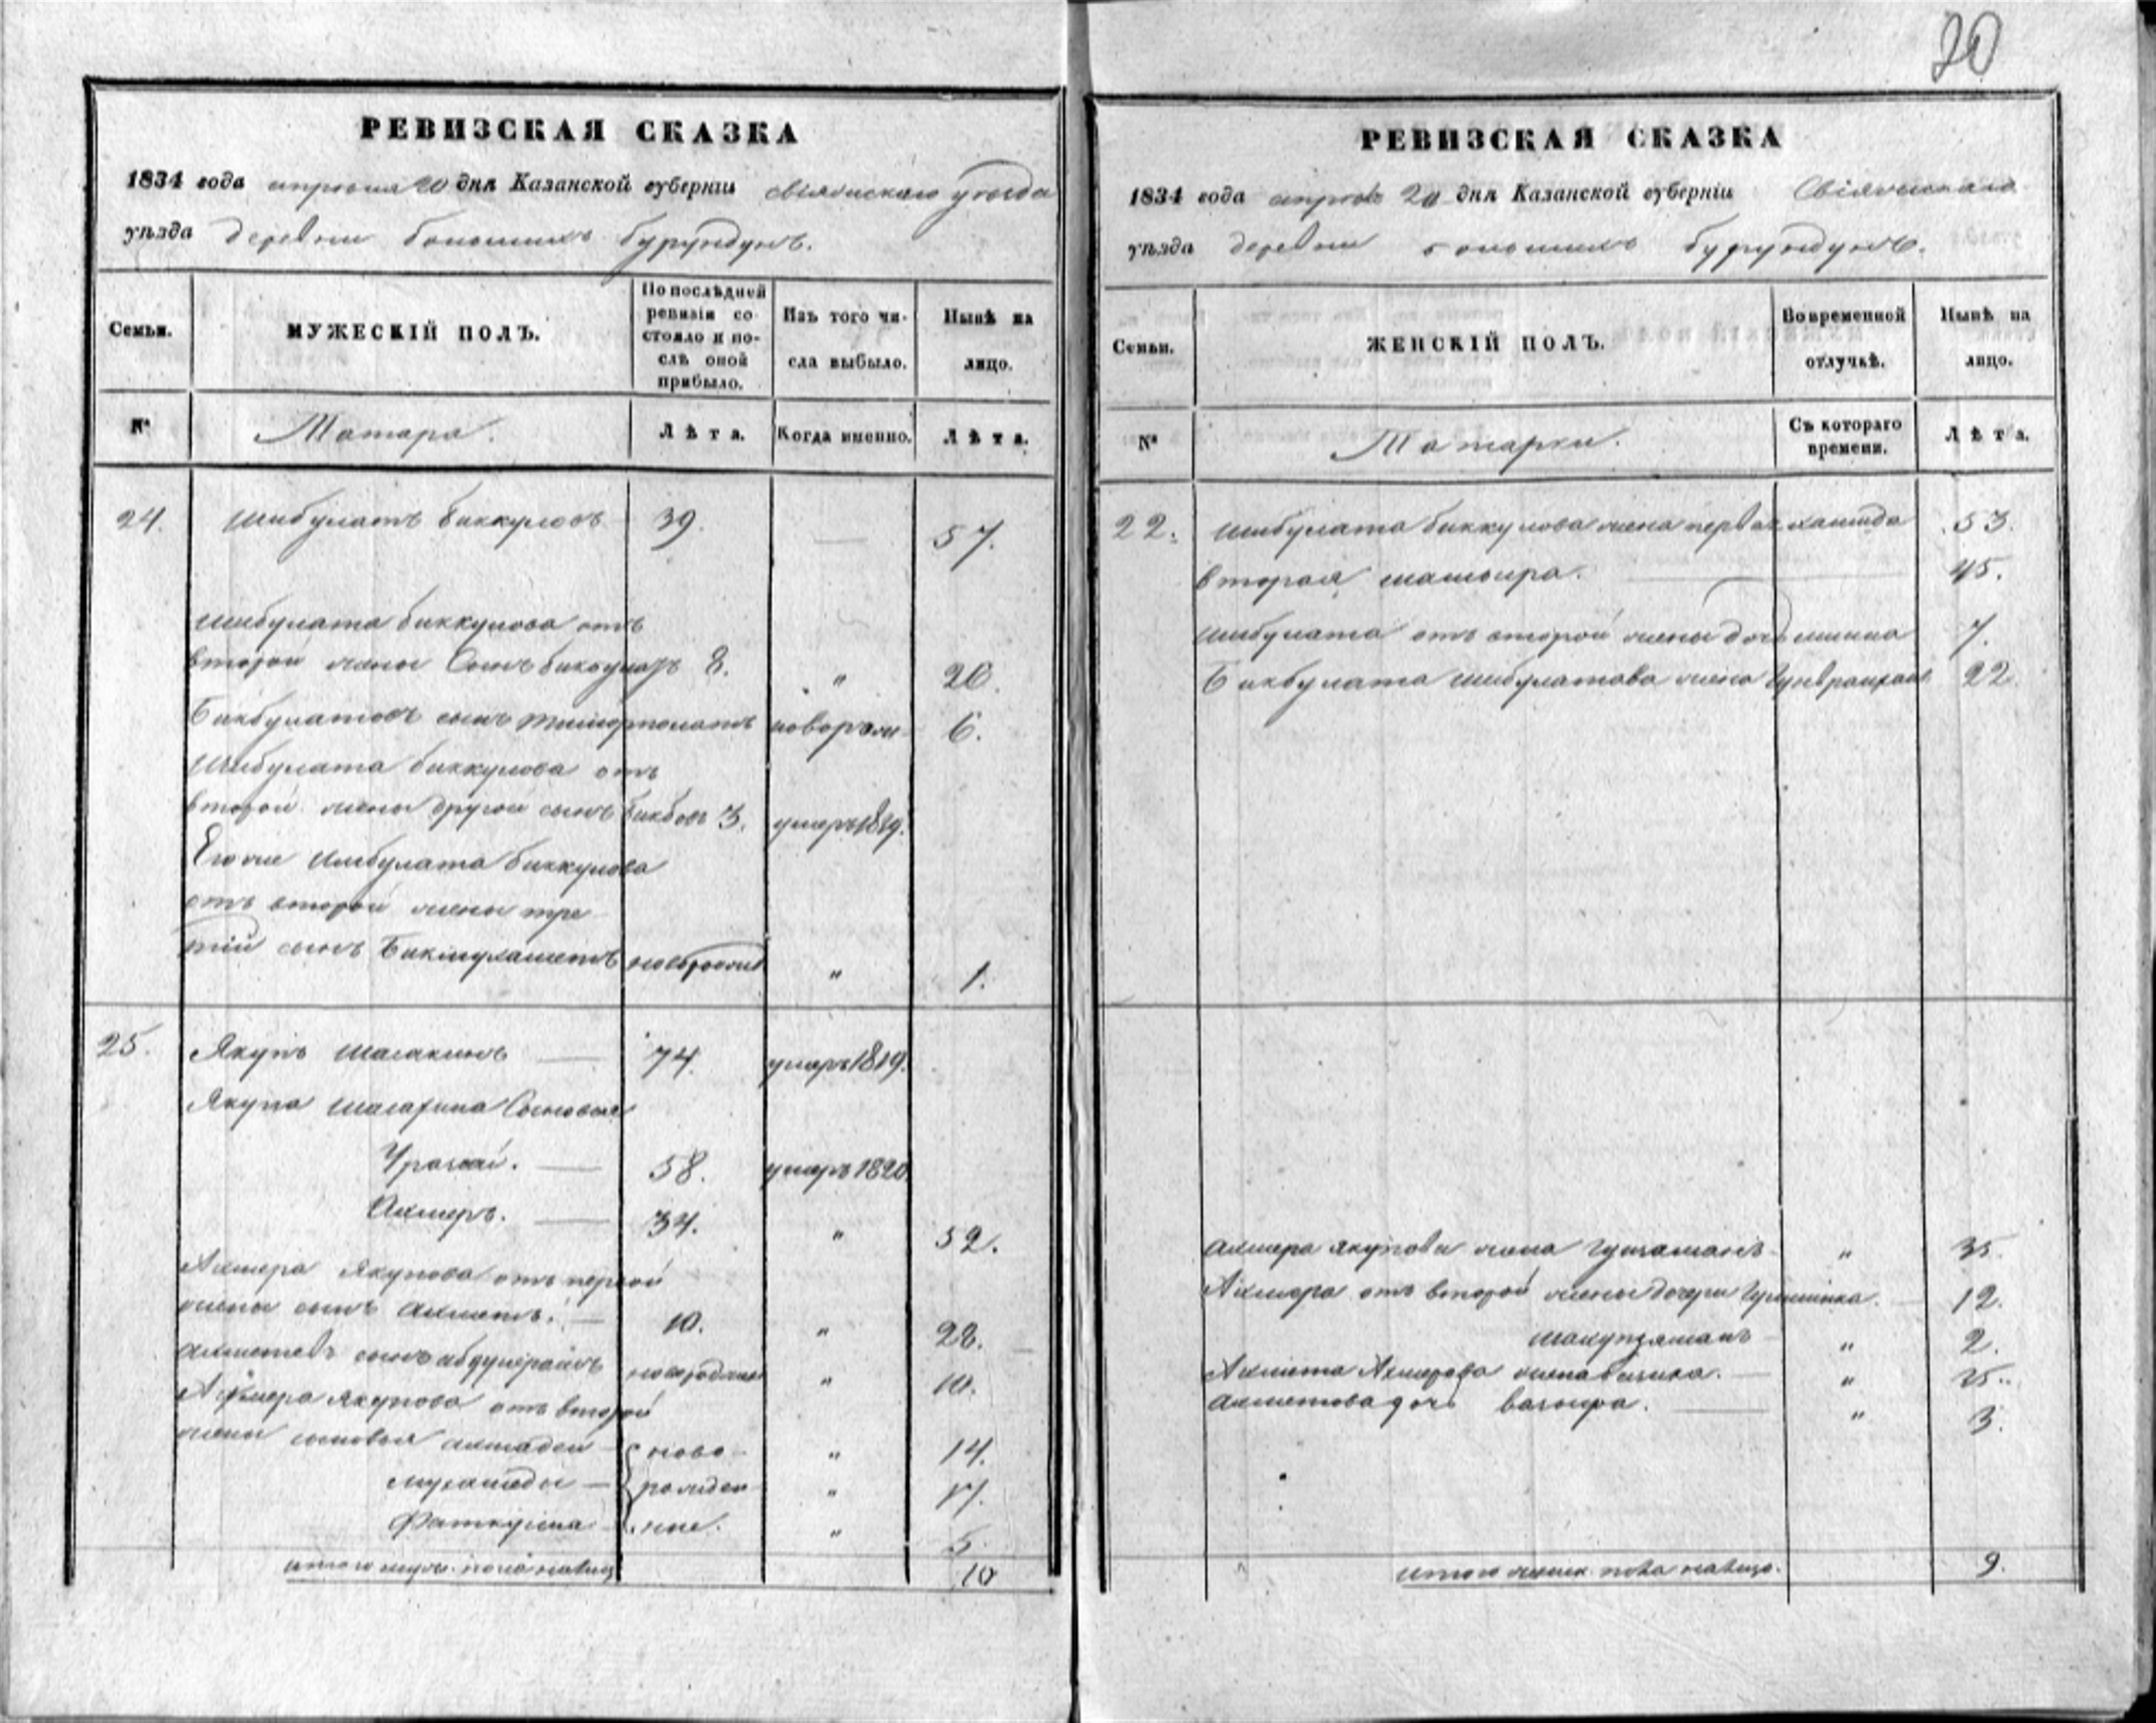 20
РЕВИЗСКАЯ СКАЗКА
1834 года апреля 20 дня Казанской губернiи свiяжскаго уезда
уѣзда деревни большихъ бурундукъ.
Семьи.
МУЖЕСКIЙ ПОЛЪ.
По послѣдней ревизiи состояло и послѣ оной прибыло.
Изъ того числа выбыло.
Нынѣ на лицо.
№
Татара.
Лѣта.
Когда именно.
Лѣта.
24. Шибулатъ биккуловъ 39. — 57.
Шибулата биккулова отъ
второй жены Сынъ бикбулатъ 8. " 26.
Бикбулатовъ сынъ новорож 6.
Шибулата биккулова отъ
второй жены другой сынъ бикбовъ 3. умеръ 1819.
Его же Шибулата биккулова
отъ второй жены тре
тiй сынъ Бикмухаметъ новорожд " 1.
25. Якупъ — 74. умеръ 1819.
Якупа Сыновья
Уразай. — 58. умеръ 1820
Акмеръ. — 34. " 52.
Акмера Якупова отъ первой
жены сынъ Ахметъ. — 10. " 28.
Ахметевъ сынъ новорожден " 10.
Акмера Якупова отъ второй
жены сыновья ахмадей ново- " 14.
— рожден " 17.
Фаткулла — ные. " 5.
итого муж. пола налиц 10
РЕВИЗСКАЯ СКАЗКА
1834 года апреля 20 дня Казанской губернiи Свiяжскаго
уѣзда деревни большихъ бурундукъ.
Семьи.
ЖЕНСКIЙ ПОЛЪ.
Во временной отлучкѣ.
Нынѣ на лицо.
№
Татарки.
Съ котораго времени.
Лѣта.
22. Шибулата биккулова жена первая хамида 53.
вторая 45.
Шибулата отъ второй жены дочь 7.
Бикбулата Шибулатова жена 22.
Акмера якупова жена " 35.
Акмера отъ второй жены дочери — 12.
" 2.
Ахмета Акмерова жена — " 25.
Ахметова дочь — " 3.
итого женск. пола налицо. 9.